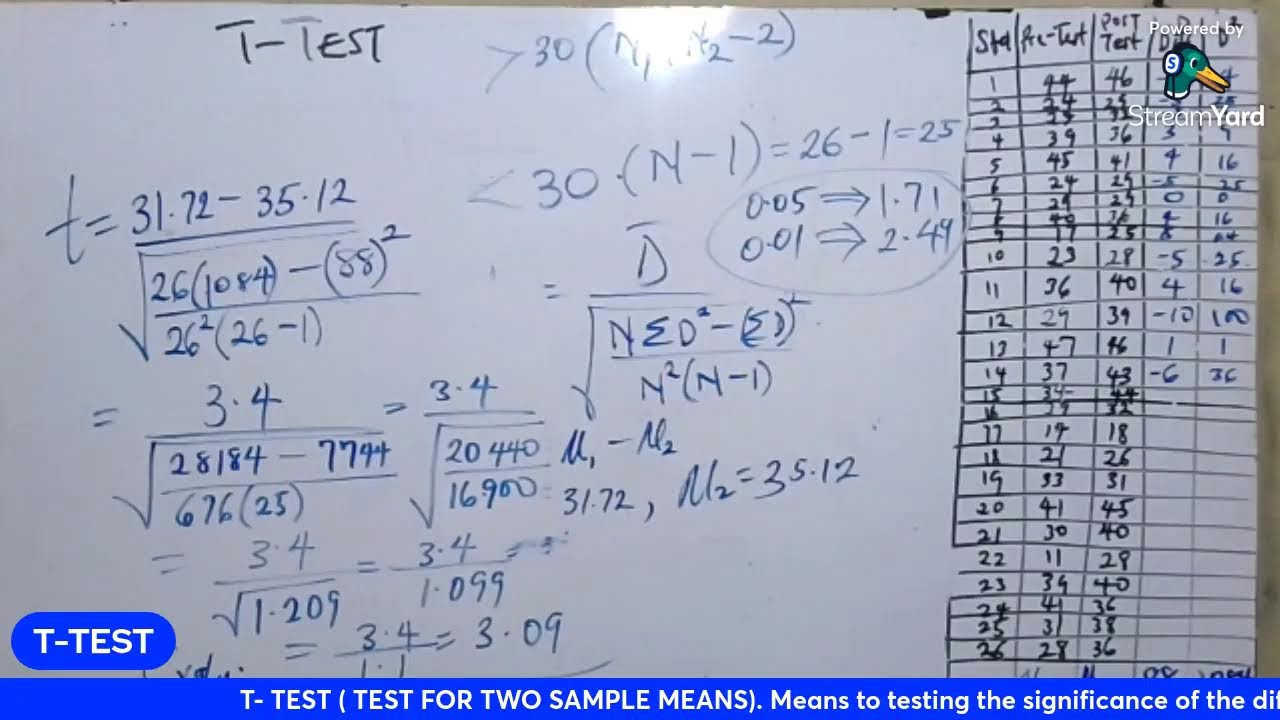 T-TEST
> 30 (N₁, N₂-2)
< 30 · (N-1) = 26-1 = 25
0.05 ⇒ 1.71
0.01 ⇒ 2.49
t = 31.72 - 35.12
√ 26(1084) - (88)²
26²(26-1)
= D̄
√ NΣD² - (ΣD)²
N²(N-1)
= 3.4 = 3.4
√ 28184 - 7744 √ 20440
676(25) 16900
M₁ - M₂
31.72, M₂ = 35.12
= 3.4 = 3.4 =
√1.209 1.099
= 3.4 = 3.09
1.1
Std Pre-Test Post Test
1 44 46 4
2 24
3
4 39 36 3 9
5 45 41 4 16
6 24 29 -5 25
7 29 29 0 0
8 40 36 4 16
9 17 25 8 64
10 23 28 -5 25
11 36 40 4 16
12 29 39 -10 100
13 47 46 1 1
14 37 43 -6 36
15 34 44
16 29 32
17 19 18
18 21 26
19 33 31
20 41 45
21 30 40
22 11 28
23 39 40
24 41 36
25 31 38
26 28 36
Powered by
S
StreamYard
T-TEST
T- TEST ( TEST FOR TWO SAMPLE MEANS). Means to testing the significance of the di